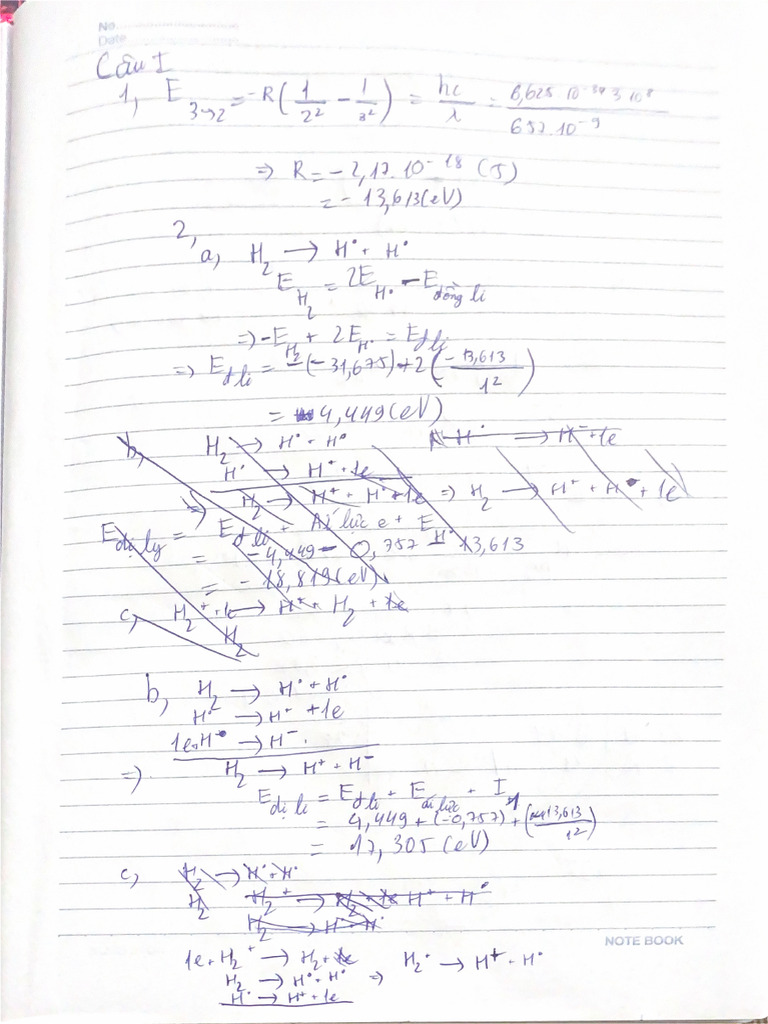 No.
Date
Câu I
1, E 3→2 = -R(1/2² - 1/3²) = hc/λ = 6,625 10⁻³⁴ 3 10⁸ / 657.10⁻⁹
=> R = -2,17.10⁻¹⁸ (J)
= -13,613(eV)
2,
a, H₂ → H• + H•
E H₂ = 2E H• - E đồng li
=> -E H₂ + 2E H• = E đ li
=> E đ li = -(-31,675) + 2(-13,613/1²)
= 4,449(eV)
b, H₂ → H• + H•
H• → H⁺ + 1e
H₂ → H⁺ + H• + 1e => H₂ → H⁺ + H• + 1e
E dị ly = E đ li + Ái lực e + E H•
= -4,449 - 0,757 - 13,613
= -18,819(eV)
c, H₂⁺ + 1e → H⁺ + H₂ + 1e
H₂
b, H₂ → H• + H•
H• → H⁺ + 1e
1e + H• → H⁻
=> H₂ → H⁺ + H⁻
E dị li = E đ li + E ái lực + I₁
= 4,449 + (-0,757) + (13,613/1²)
= 17,305 (eV)
c, H₂ → H• + H•
H₂ H₂⁺ → H⁺ + H•
H₂ → H• H•
1e + H₂⁺ → H₂ + 1e
H₂ → H• + H• => H₂• → H⁺ + H•
H• → H⁺ + 1e
NOTE BOOK